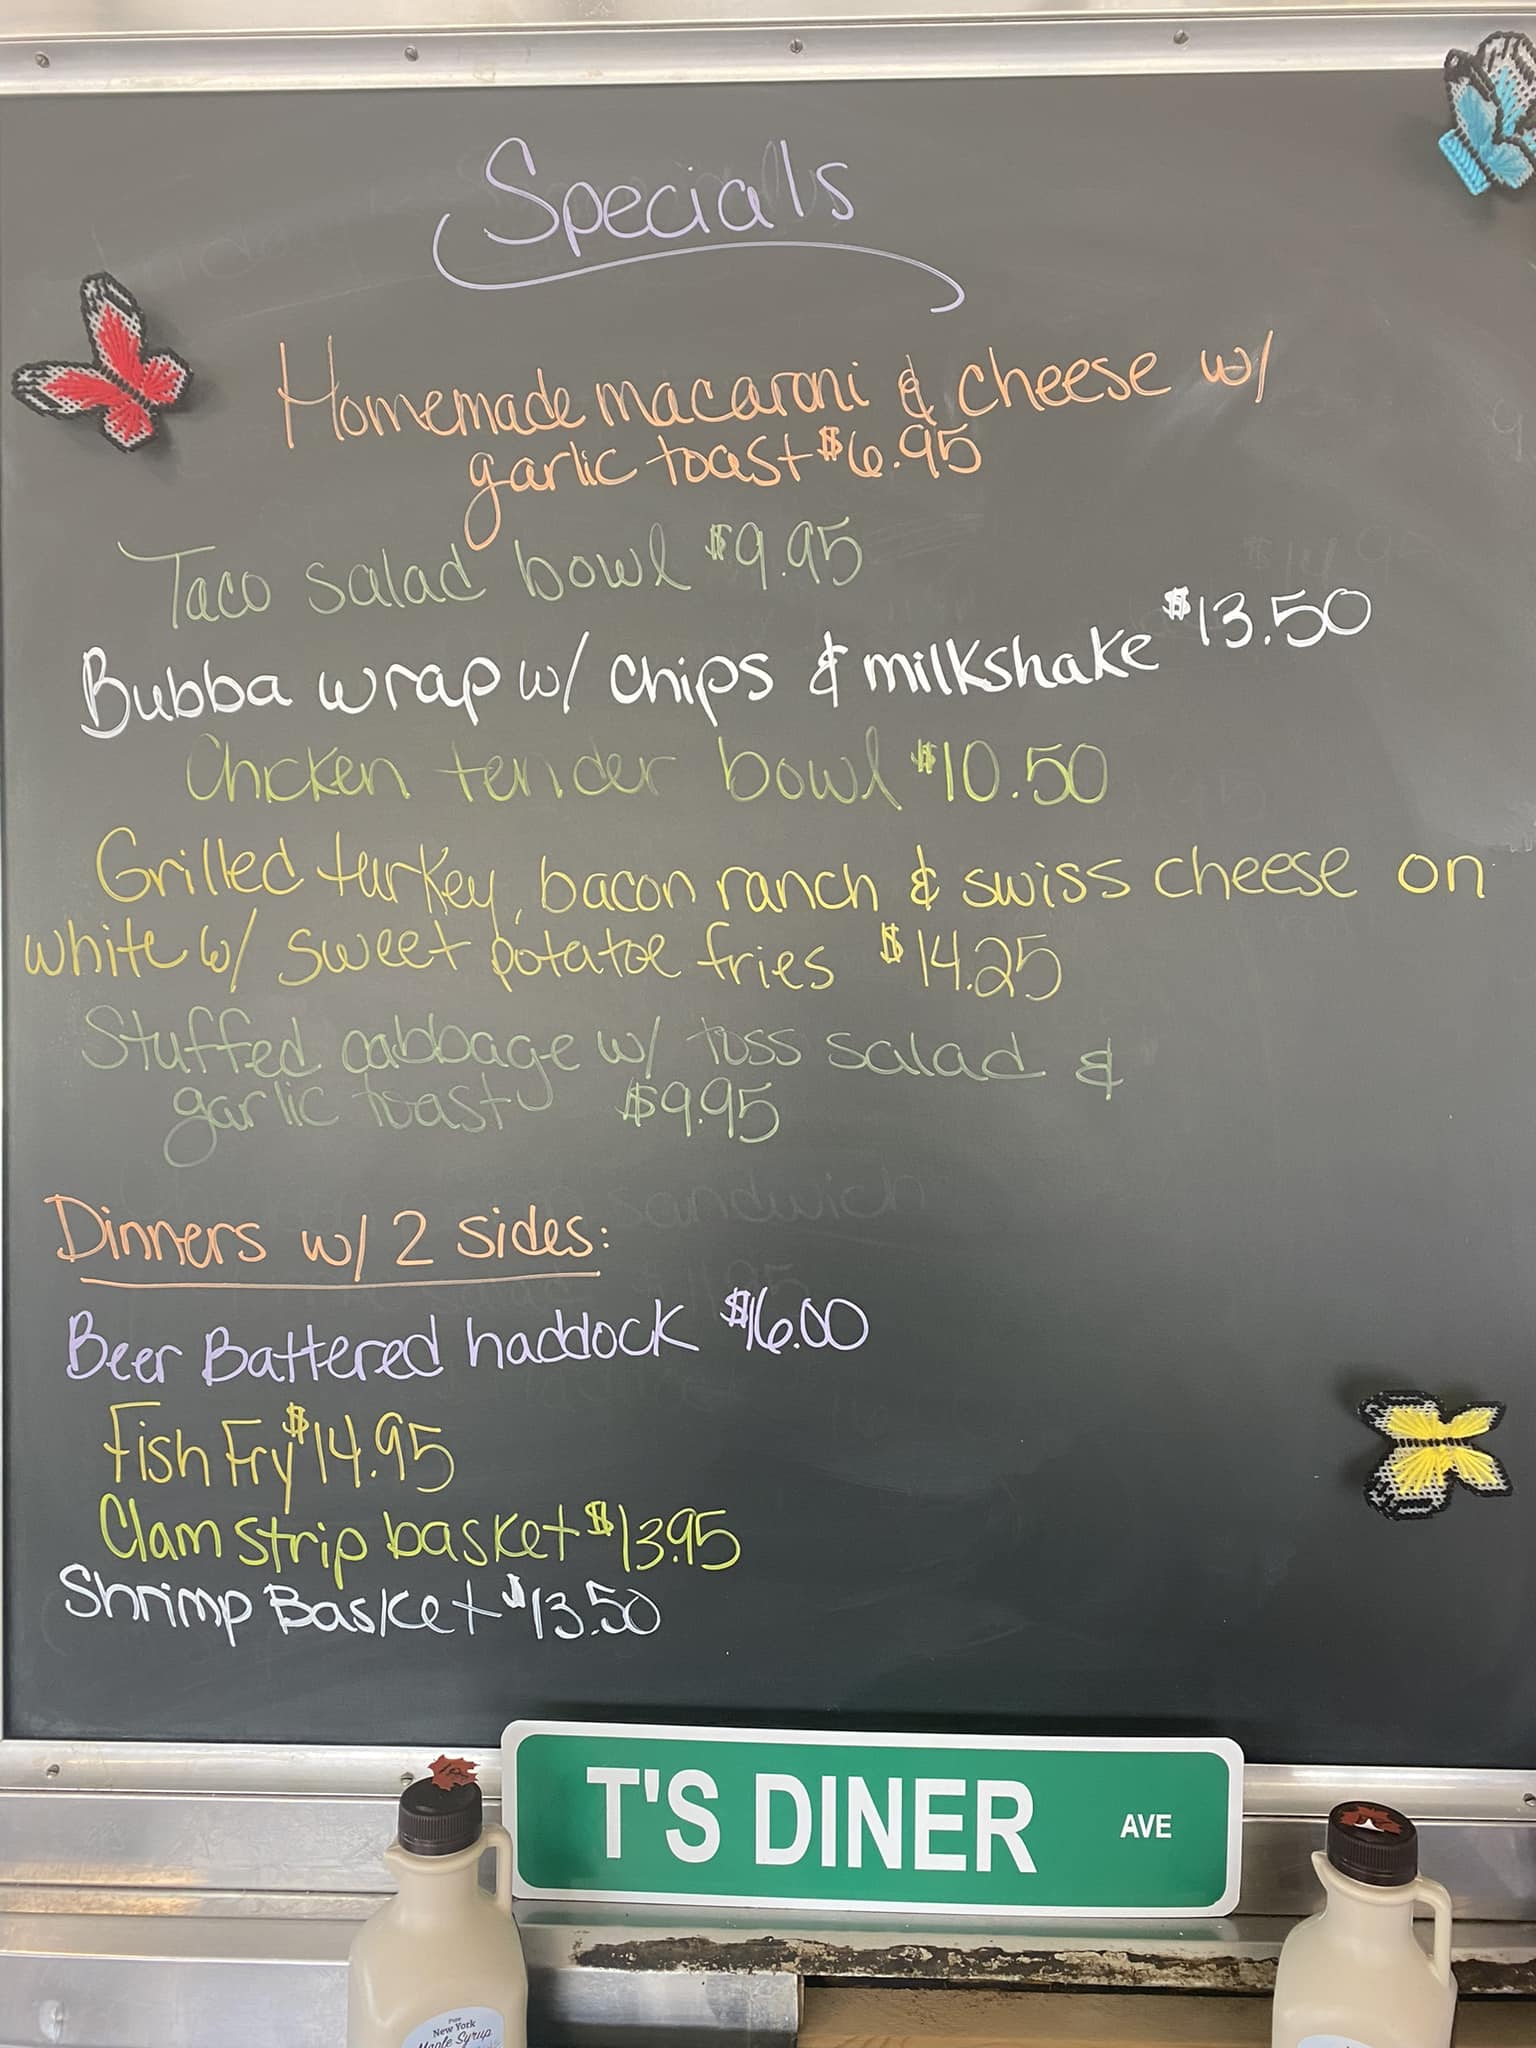 Specials
Homemade macaroni & cheese w/
garlic toast $6.95
Taco salad bowl $9.95
Bubba wrap w/ chips & milkshake $13.50
Chicken tender bowl $10.50
Grilled turkey, bacon ranch & swiss cheese on
white w/ sweet potatoe fries $14.25
Stuffed cabbage w/ toss salad &
garlic toast $9.95
Dinners w/ 2 sides:
Beer Battered haddock $16.00
Fish Fry $14.95
Clam strip basket $13.95
Shrimp Basket $13.50
T'S DINER AVE
Pure
New York
Maple Syrup